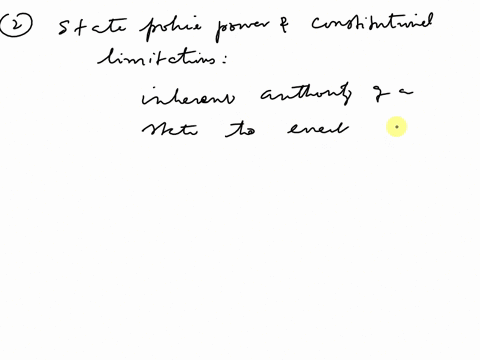 ② State police power & constitutional
limitations:
inherent authority of a
state to enact